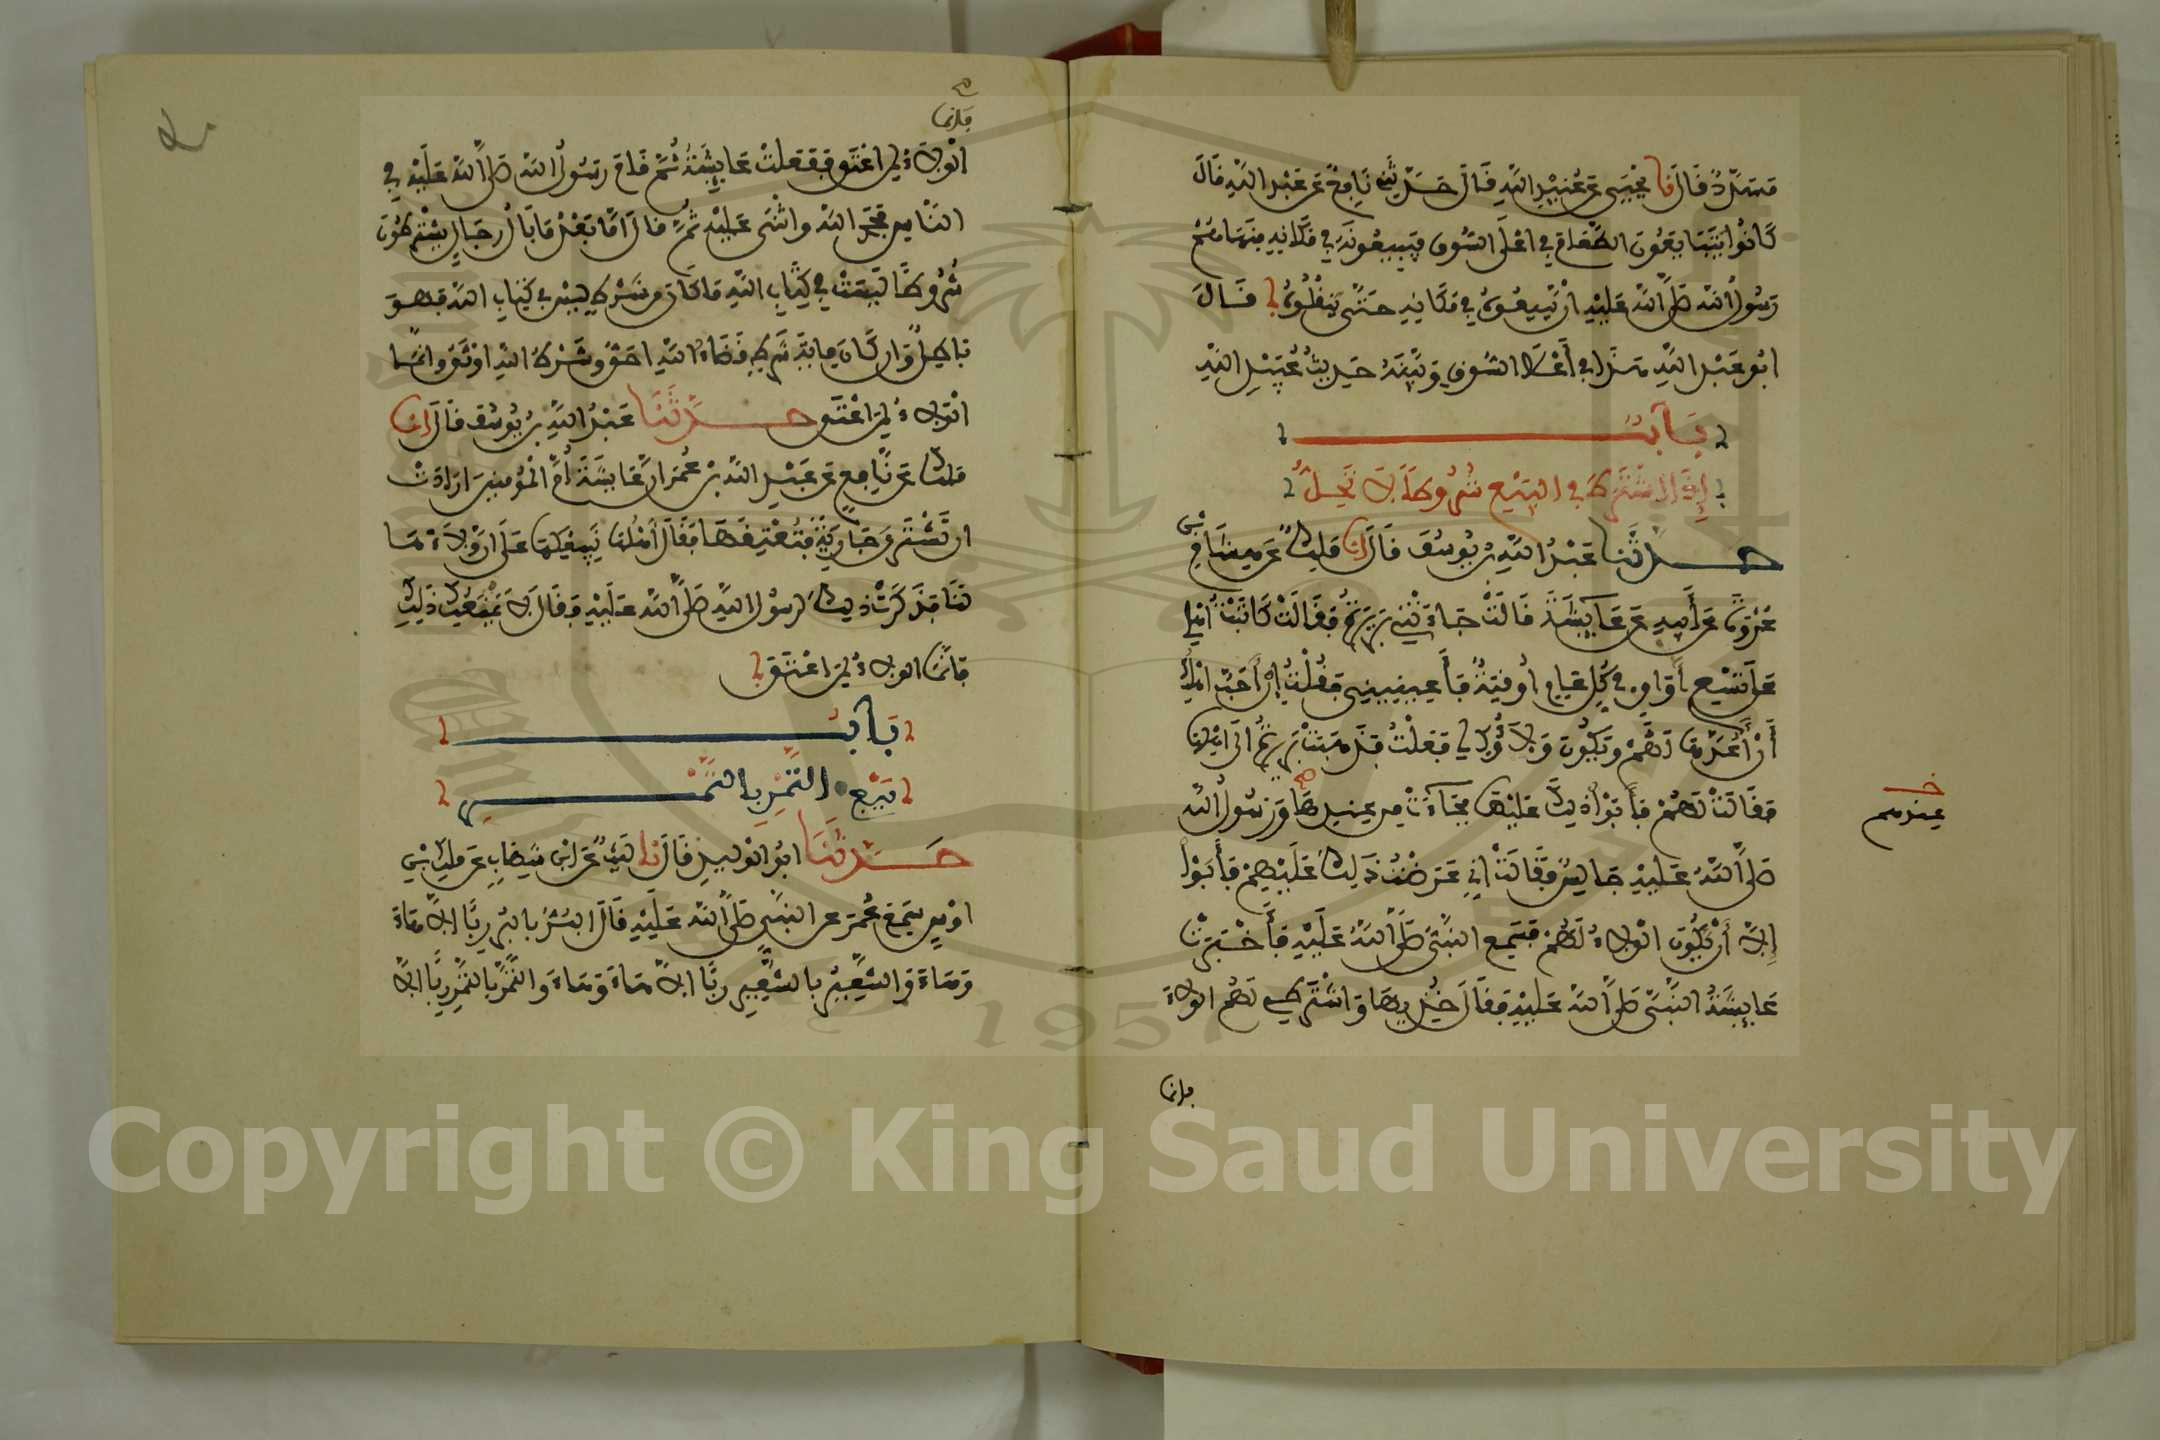 مُسَدَّدٌ قَالَ نَا يَحْيَى عَن عُبَيْدِ اللَّهِ قَالَ حَدَّثَنِي نَافِعٌ عَن عَبْدِ اللَّهِ قَالَ
كَانُوا يَتَبَايَعُونَ الطَّعَامَ فِي أَعْلَى السُّوقِ فَيَبِيعُونَهُ فِي مَكَانِهِ فَنَهَاهُمْ
رَسُولُ اللَّهِ صَلَّى اللَّهُ عَلَيْهِ أَنْ يَبِيعُوهُ فِي مَكَانِهِ حَتَّى يَنْقُلُوهُ قَالَ
أَبُو عَبْدِ اللَّهِ هَذَا فِي أَعْلَا السُّوقِ وَيُبَيِّنُهُ حَدِيثُ عُبَيْدِ اللَّهِ
بَابُ
إِذَا اشْتَرَطَ فِي الْبَيْعِ شُرُوطاً لاَ تَحِلُّ
حدثنا عَبْدُ اللَّهِ بْنُ يُوسُفَ قَالَ انا مَلِكٌ عَن هِشَامِ بْنِ
عُرْوَةَ عَن أَبِيهِ عَن عَائِشَةَ قَالَتْ جَاءَتْنِي بَرِيرَةُ فَقَالَتْ كَاتَبْتُ أَهْلِي
عَلَى تِسْعِ أَوَاقٍ فِي كُلِّ عَامٍ أُوقِيَّةٌ فَأَعِينِينِي فَقُلْتُ إِنْ أَحَبَّ أَهْلُكِ
أَنْ أَعُدَّهَا لَهُمْ وَيَكُونَ وَلاَؤُكِ لِي فَعَلْتُ فَذَهَبَتْ بَرِيرَةُ إِلَى أَهْلِهَا
فَقَالَتْ لَهُمْ فَأَبَوْا ذَلِكَ عَلَيْهَا فَجَاءَتْ مِن عِنْدِهَا وَرَسُولُ اللَّهِ
عِندهم
صَلَّى اللَّهُ عَلَيْهِ جَالِسٌ فَقَالَتْ إِنِّي عَرَضْتُ ذَلِكَ عَلَيْهِمْ فَأَبَوْا
إِلاَّ أَنْ يَكُونَ الْوَلاَءُ لَهُمْ فَسَمِعَ النَّبِيُّ صَلَّى اللَّهُ عَلَيْهِ فَأَخْبَرَتْ
عَائِشَةُ النَّبِيَّ صَلَّى اللَّهُ عَلَيْهِ فَقَالَ خُذِيهَا وَاشْتَرِطِي لَهُمُ الْوَلاَءَ
فإنما
فإنما
الْوَلاَءُ لِمَن أَعْتَقَ فَفَعَلَتْ عَائِشَةُ ثُمَّ قَامَ رَسُولُ اللَّهِ صَلَّى اللَّهُ عَلَيْهِ فِي
النَّاسِ فَحَمِدَ اللَّهَ وَأَثْنَى عَلَيْهِ ثُمَّ قَالَ أَمَّا بَعْدُ مَا بَالُ رِجَالٍ يَشْتَرِطُونَ
شُرُوطًا لَيْسَتْ فِي كِتَابِ اللَّهِ مَا كَانَ مِن شَرْطٍ لَيْسَ فِي كِتَابِ اللَّهِ فَهُوَ
بَاطِلٌ وَإِن كَانَ مِائَةَ شَرْطٍ قَضَاءُ اللَّهِ أَحَقُّ وَشَرْطُ اللَّهِ أَوْثَقُ وَإِنَّمَا
الْوَلاَءُ لِمَن أَعْتَقَ حدثنا عَبْدُ اللَّهِ بْنُ يُوسُفَ قَالَ انا
مَلِكٌ عَن نَافِعٍ عَن عَبْدِ اللَّهِ بْنِ عُمَرَ أَنَّ عَائِشَةَ أُمَّ الْمُؤْمِنِينَ أَرَادَتْ
أَن تَشْتَرِيَ جَارِيَةً فَتُعْتِقَهَا فَقَالَ أَهْلُهَا نَبِيعُكِهَا عَلَى أَنَّ وَلاَءَهَا
لَنَا فَذَكَرَتْ ذَلِكَ لِرَسُولِ اللَّهِ صَلَّى اللَّهُ عَلَيْهِ فَقَالَ لاَ يَمْنَعُكِ ذَلِكِ
فَإِنَّمَا الْوَلاَءُ لِمَن أَعْتَقَ
بَابُ
بَيْعِ التَّمْرِ بِالتَّمْرِ
حدثنا أَبُو الْوَلِيدِ قَالَ نا لَيْثٌ عَنِ ابْنِ شِهَابٍ عَن مَلِكِ بْنِ
أَوْسٍ سَمِعَ عُمَرَ عَنِ النَّبِيِّ صَلَّى اللَّهُ عَلَيْهِ قَالَ الْبُرُّ بِالْبُرِّ رِبًا إِلاَّ هَاءَ
وَهَاءَ وَالشَّعِيرُ بِالشَّعِيرِ رِبًا إِلاَّ هَاءَ وَهَاءَ وَالتَّمْرُ بِالتَّمْرِ رِبًا إِلاَّ
1957
Copyright © King Saud University